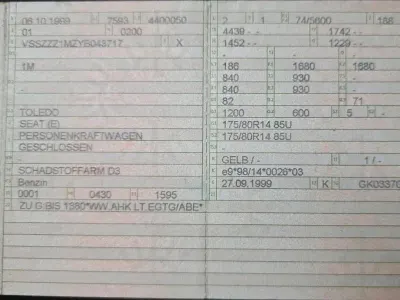 08.10.1999 7593 4400050
01 0200
VSSZZZ1MZYB048717 X
1M
TOLEDO
SEAT (E)
PERSONENKRAFTWAGEN
GESCHLOSSEN
SCHADSTOFFARM D3
Benzin
0001 0430 1595
ZU G:BIS 1380*WW.AHK LT.EGTG/ABE*
2 1 74/5600 186
4439 - - 1742 - -
1452 - - 1229 - -
- - -
186 1680 1680
840 930 -
840 930 -
82 71
1200 600 5 -
175/80R14 85U
175/80R14 85U
GELB / - 1 / -
e9*98/14*0026*03
27.09.1999 K GK03370